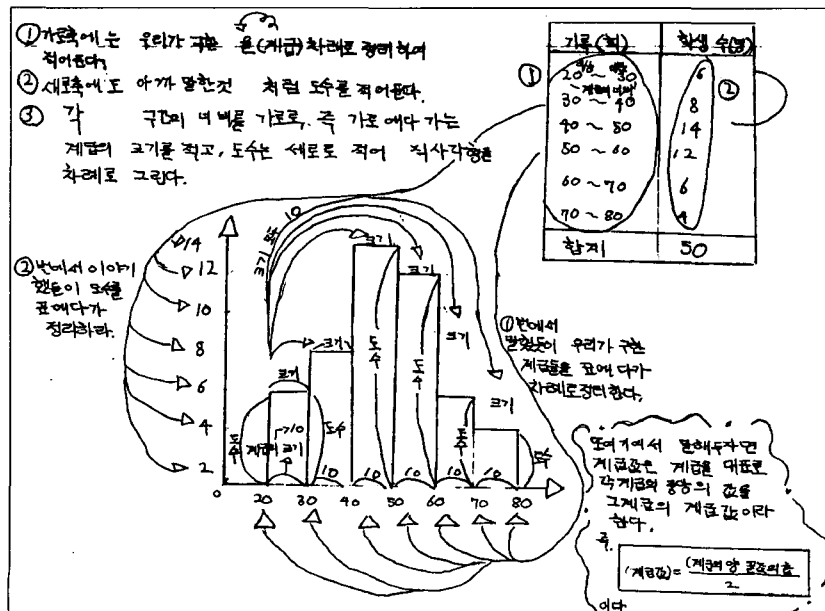 ① 가로축에는 우리가 구한 을(계급)차례로 정리하여
적어둔다.
② 세로축에도 아까 말한것 처럼 도수를 적어둔다.
③ 각 구간의 너비를 가로로, 즉 가로에다 가는
계급의 크기를 적고, 도수는 세로로 적어 직사각형을
차례로 그린다.
기록(회) 학생 수(명)
① ②
이상 미만
20 ~ 30 6
30 ~ 40 8
40 ~ 50 14
50 ~ 60 12
60 ~ 70 6
70 ~ 80 4
합계 50
②번에서 이야기
했듯이 도수를
표에다가
정리하라.
14
12
10
8
6
4
2
0
20 30 40 50 60 70 80
크기 도수 10
크기
크기
크기
크기
크기
크기
도수
도수
도수
도수
도수
도수
계급의 크기
10
10 10 10 10 10
①번에서
말했듯이 우리가 구한
계급들을 표에 다가
차례로정리한다.
또여기에서 말해두자면
계급값은 계급을 대표로
각계급의 중앙의 값을
그계급의 계급값이라
한다.
즉,
(계급값)=(계급의 양 끝값의 합)/2
이다